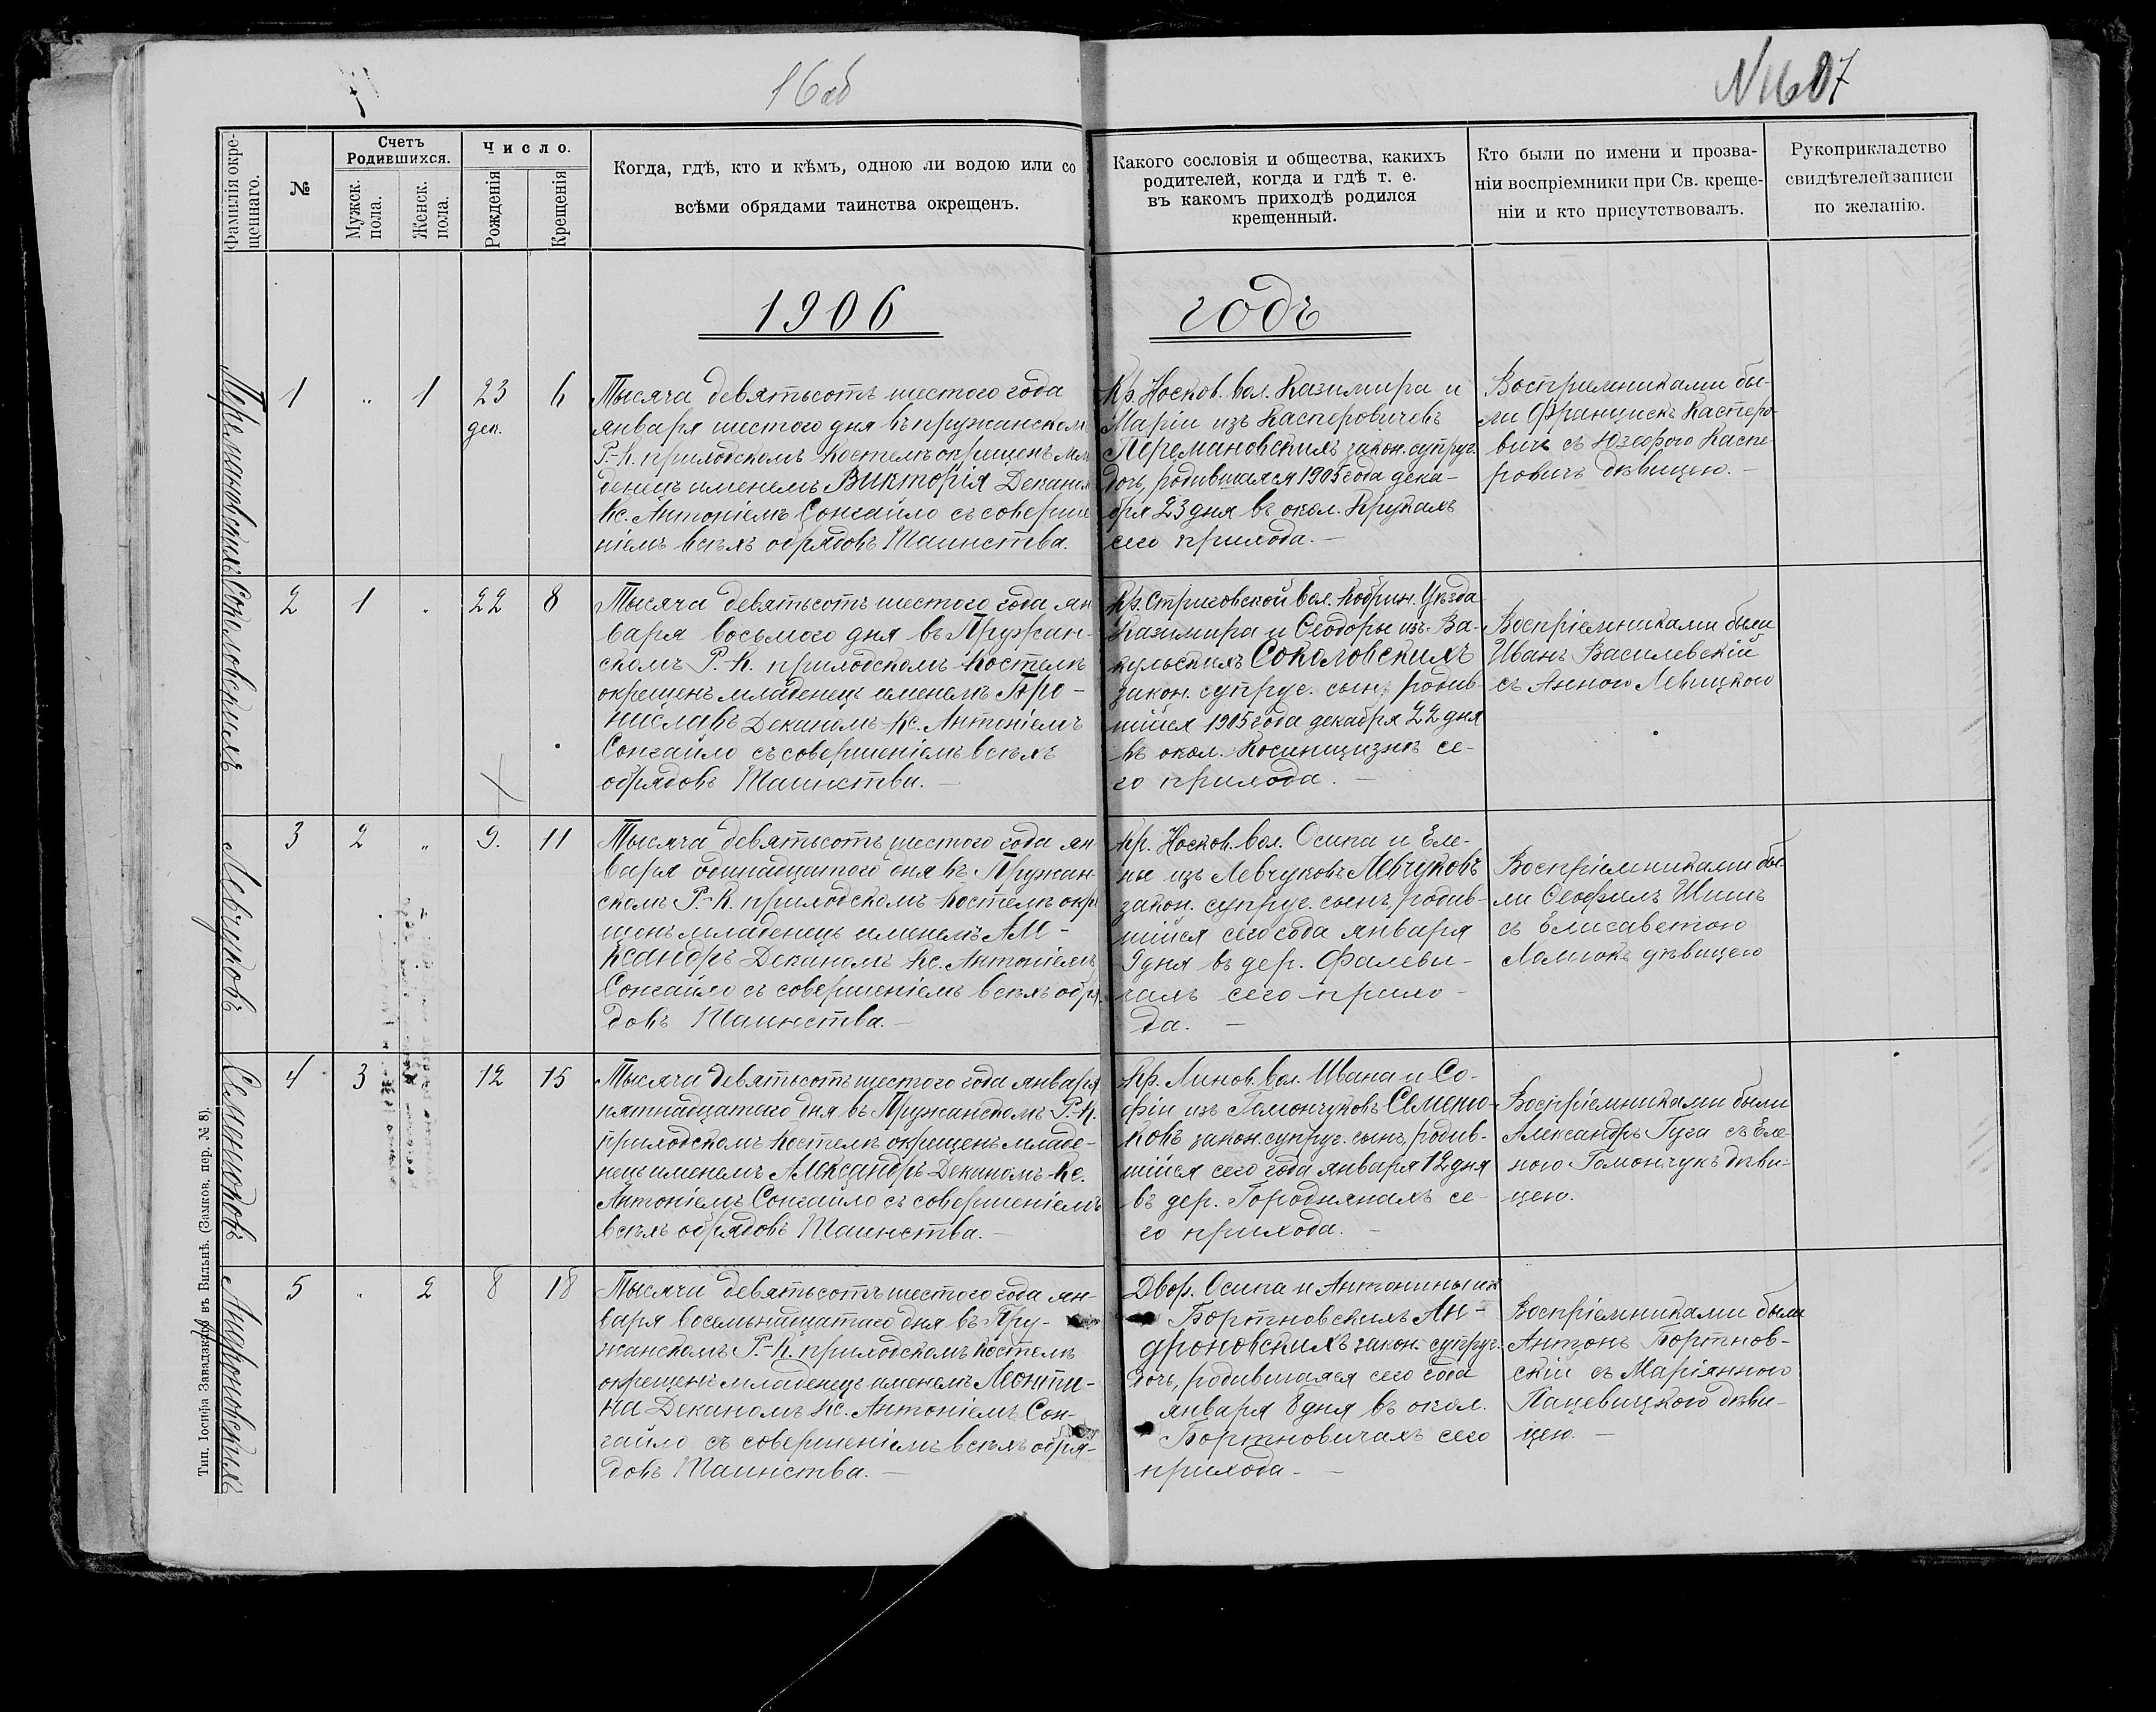 16 об
N1607
Фамилія окре-
щеннаго.
№
Счетъ
Родившихся.
Мужск.
пола.
Женск.
пола.
Число.
Рожденія
Крещенія
Когда, гдѣ, кто и кѣмъ, одною ли водою или со
всѣми обрядами таинства окрещенъ.
Какого сословія и общества, какихъ
родителей, когда и гдѣ т. е.
въ какомъ приходѣ родился
крещенный.
Кто были по имени и прозва-
ніи воспріемники при Св. креще-
ніи и кто присутствовалъ.
Рукоприкладство
свидѣтелей записи
по желанію.
1906 годъ
Перемановскихъ
1 " 1 23 дек. 6
Тысяча девятьсотъ шестого года
января шестого дня въ Пружанскомъ
Р.-К. приходскомъ костелѣ окрещенъ мла
денецъ именемъ Викторія Деканом
Кс. Антоніемъ Сонгайло съ соверше
ніемъ всѣхъ обрядовъ Таинства.
Кр. Носков. вол. Казимира и
Маріи изъ Касперовичевъ
Перемановскихъ закон. супруг.
дочь, родившаяся 1905 года дека-
бря 23 дня въ окол. Крукахъ
сего прихода. -
Воспріемниками бы-
ли Францискъ Касперо-
вичъ съ Юзефою Каспе-
ровичъ дѣвицею. -
Соколовскихъ
2 1 . 22 8
Тысяча девятьсотъ шестого года ян
варя восьмого дня въ Пружан-
скомъ Р.-К. приходскомъ костелѣ
окрещенъ младенецъ именемъ Бро-
ниславъ Деканомъ Кс. Антоніемъ
Сонгайло съ совершеніемъ всѣхъ
обрядовъ Таинства. -
Кр. Стриговской вол. Кобрин. Уѣзда
Казимира и Ѳеодоры изъ Ва-
кульскихъ Соколовскихъ
закон. супруг. сынъ, родив-
шійся 1905 года декабря 22 дня
въ окол. Косинщизнѣ се-
го прихода. -
Воспріемниками были
Иванъ Василевскій
съ Анною Левицкою
Левчуковъ
3 2 " 9. 11
Тысяча девятьсотъ шестого года ян
варя одинадцатого дня въ Пружан-
скомъ Р.-К. приходскомъ костелѣ окре
щенъ младенецъ именемъ Але-
ксандръ Деканомъ Кс. Антоніемъ
Сонгайло съ совершеніемъ всѣхъ обря
довъ Таинства. -
Кр. Носков. вол. Осипа и Еле-
ны изъ Левчуковъ Левчуковъ
закон. супруг. сынъ, родив-
шійся сего года января
9 дня въ дер. Фалеви-
чахъ сего прихо-
да. -
Воспріемниками бы-
ли Ѳеофилъ Шишъ
съ Елисаветою
дѣвицею
Семенюковъ
4 3 12 15
Тысяча девятьсотъ шестого года января
пятнадцатаго дня въ Пружанскомъ Р.-К.
приходскомъ костелѣ окрещенъ младе-
нецъ именемъ Александръ Деканомъ Кс.
Антоніемъ Сонгайло съ совершеніемъ
всѣхъ обрядовъ Таинства. -
Кр. Линов. вол. Ивана и Со-
фіи изъ Гамончуковъ Семеню-
ковъ закон. супруг. сынъ, родив-
шійся сего года января 12 дня
въ дер. Городнянахъ се-
го прихода. -
Воспріемниками были
Александръ Гуга съ Еле-
ною Гамончукъ дѣви-
цею.
Андроновскихъ
5 " 2 8 18
Тысяча девятьсотъ шестого года ян-
варя восемьнадцатаго дня въ Пру-
жанскомъ Р.-К. приходскомъ костелѣ
окрещенъ младенецъ именемъ Леонти-
на Деканомъ Кс. Антоніемъ Сон-
гайло съ совершеніемъ всѣхъ обря-
довъ Таинства. -
Двор. Осипа и Антонины изъ
Бортновскихъ Ан-
дроновскихъ закон. супруг.
дочь, родившаяся сего года
января 8 дня въ окол.
Бортновичахъ сего
прихода. -
Воспріемниками были
Антонъ Бортнов-
скій съ Маріянною
Пацевицкою дѣви-
цею. -
Тип. Іосифа Завадзкаго въ Вильнѣ. (Замков. пер. № 8).